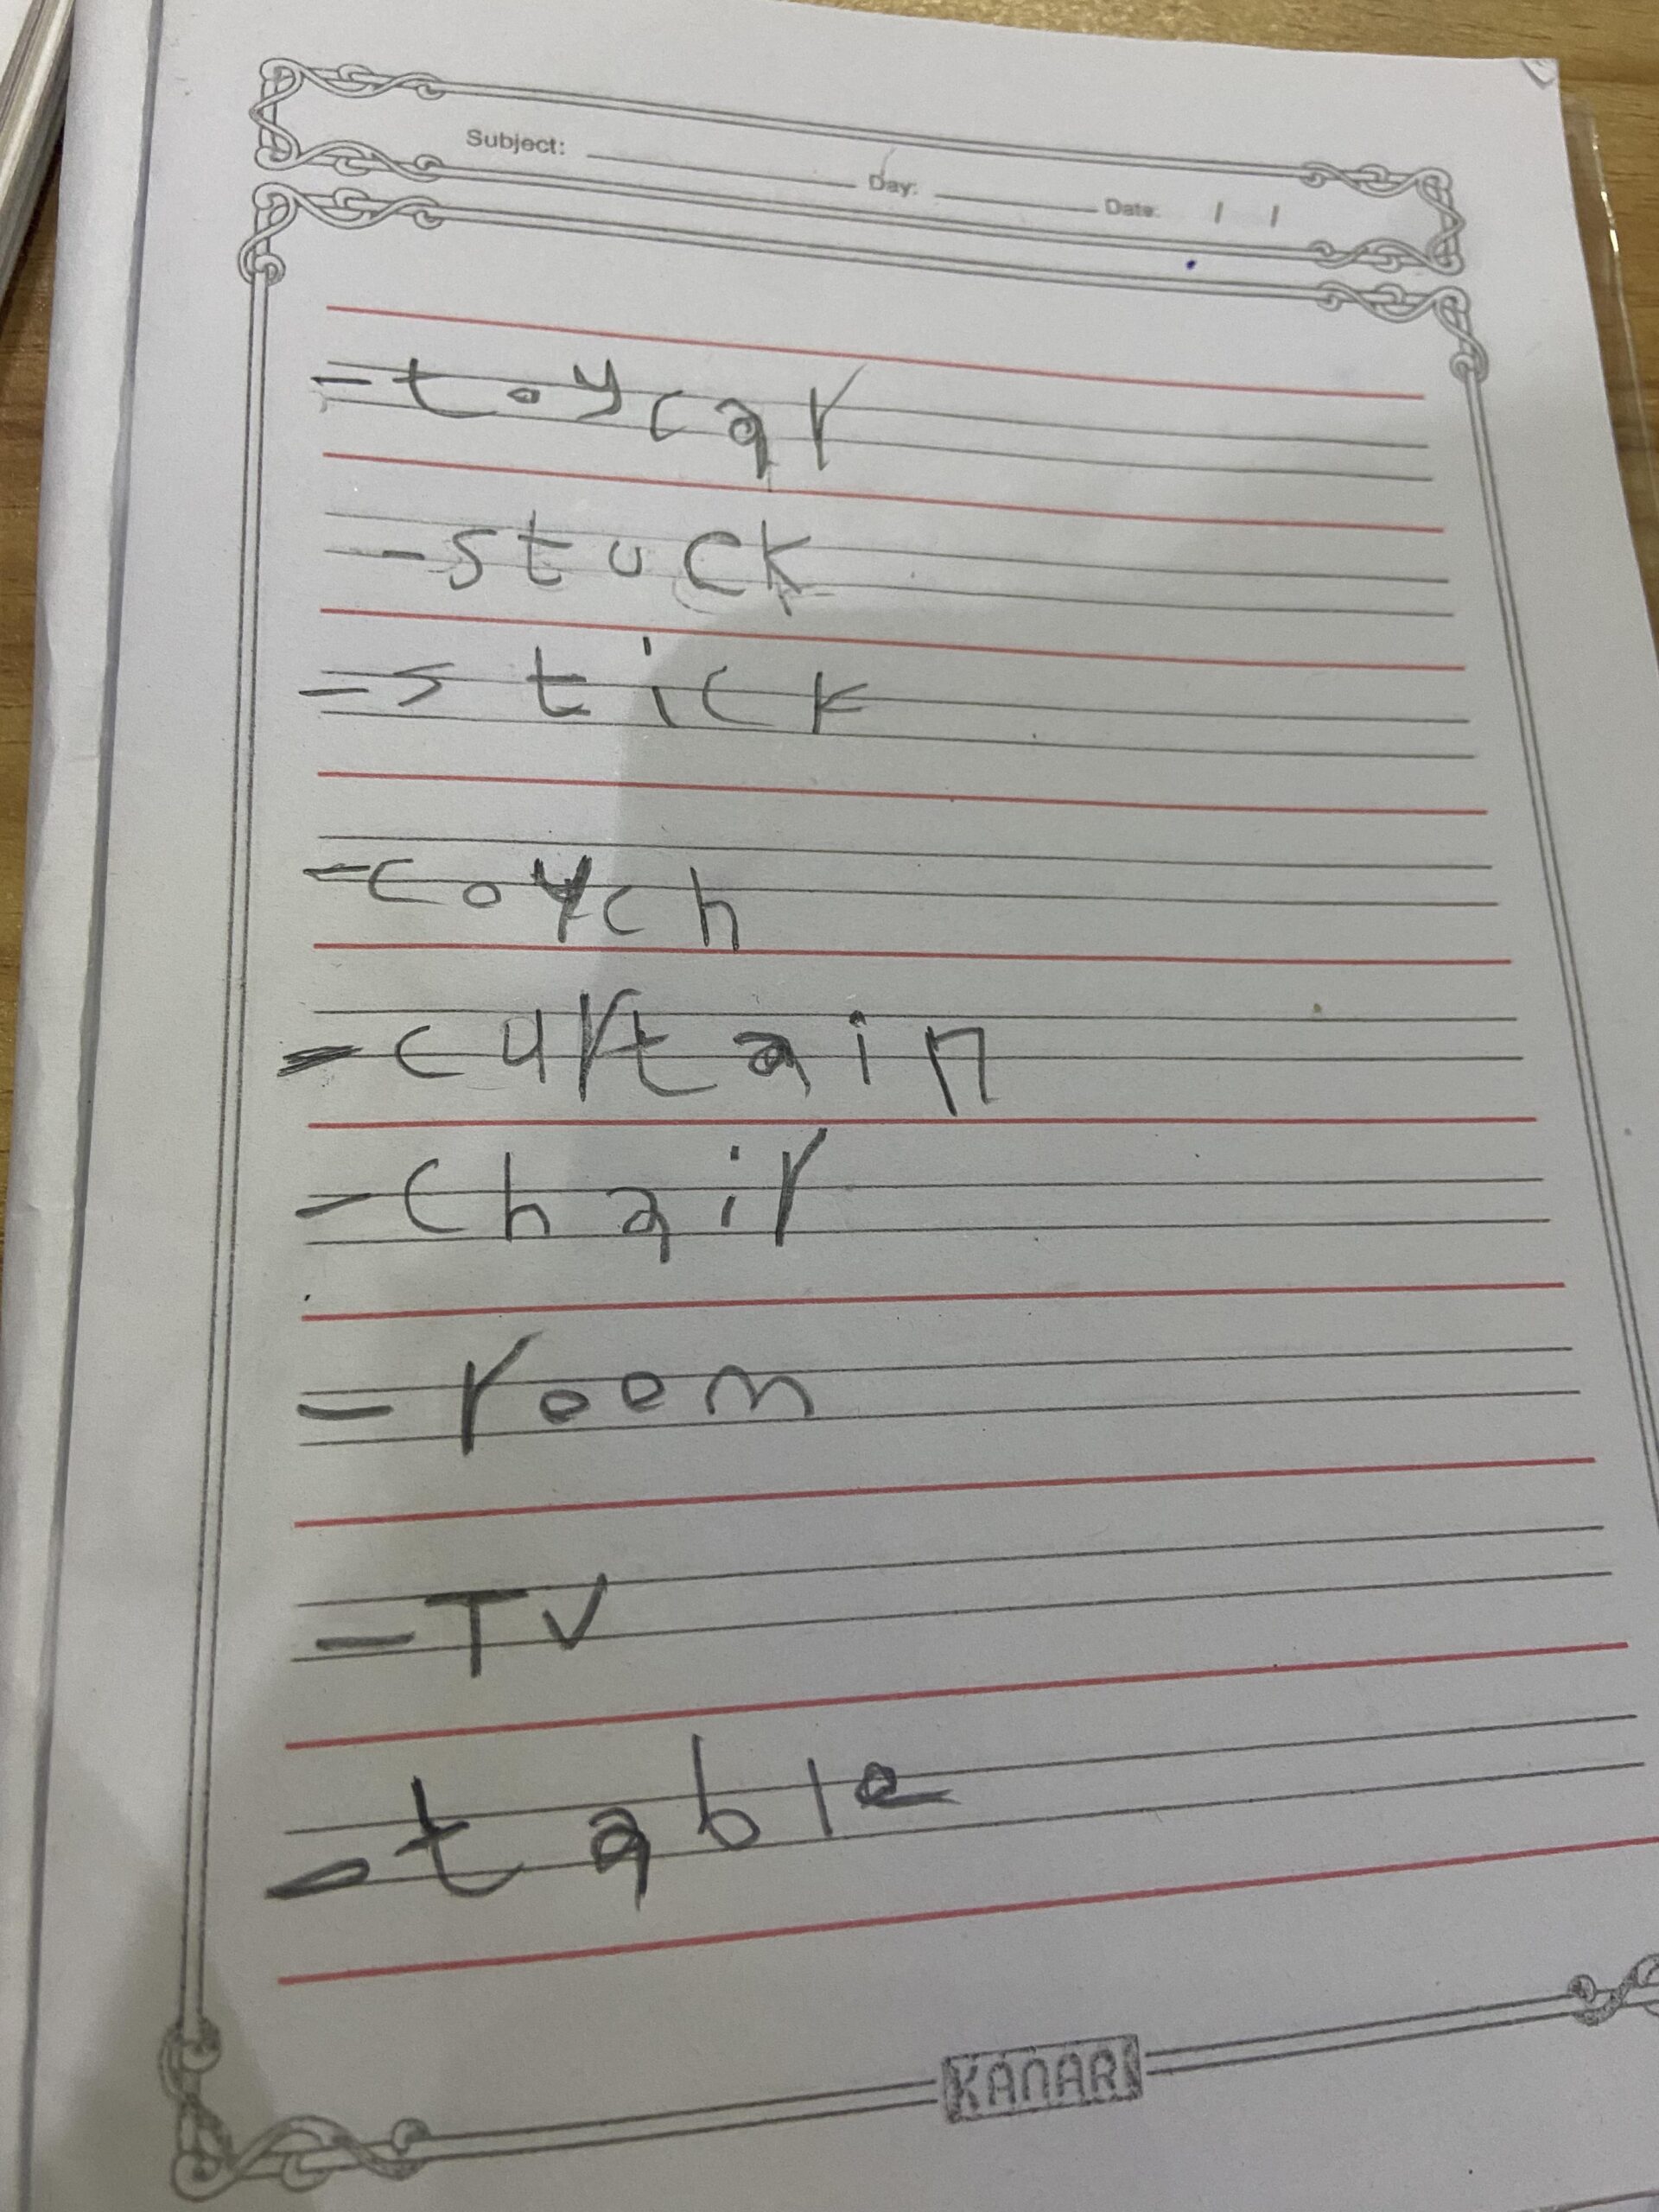 Subject: Day: Date: / /
- toy car
- stuck
- stick
- couch
- curtain
- chair
- room
- TV
- table
KANARI